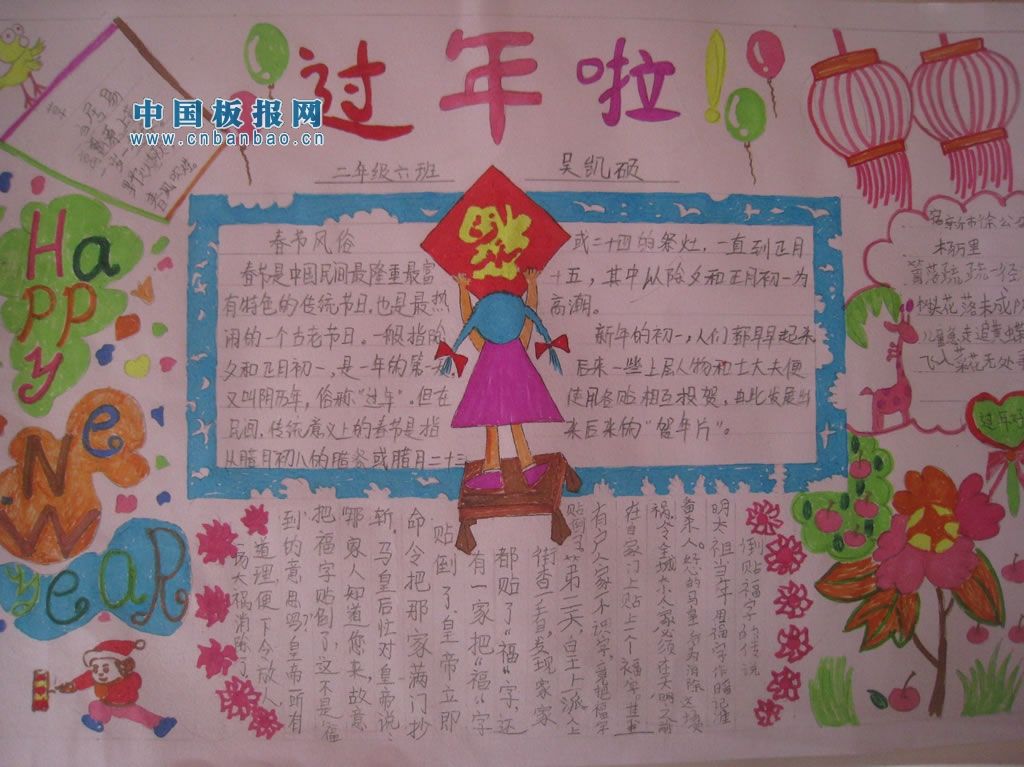 过年啦!
中国板报网
www.cnbanbao.cn
二年级六班 吴凯硕
Happy
New
Year
春节风俗
春节是中国民间最隆重最富
有特色的传统节日,也是最热
闹的一个古老节日。一般指除
夕和正月初一,是一年的第一
又叫阴历年,俗称“过年”。但在
民间,传统意义上的春节是指
从腊月初八的腊祭或腊月二十三
或二十四的祭灶,一直到正月
十五,其中从除夕和正月初一为
高潮。
新年的初一,人们都早早起来
后来一些上层人物和士大夫便
使用各贴相互投贺,由此发展出
来后来的“贺年片”。
杨万里
篱落疏疏一径
树头花落未成
儿童急走追黄蝶
飞入菜花无处寻
倒贴福字的传说
明太祖当年用福字作暗记准
备杀人。好心的马皇后为消除这场
祸,令全城大小人家必须在天明之前
在自家门上贴上一个福字。其中
有户人家不识字,竟把福字
贴倒了。第二天,皇上派人上
街查看,发现家家
都贴了“福”字,还
有一家把“福”字
贴倒了。皇帝立即
命令把那家满门抄
斩。马皇后忙对皇帝说:
“那家人知道您来,故意
把福字贴倒了,这不是“福
到”的意思吗?”皇帝一听有
道理,便下令放人,一
场大祸消除了。